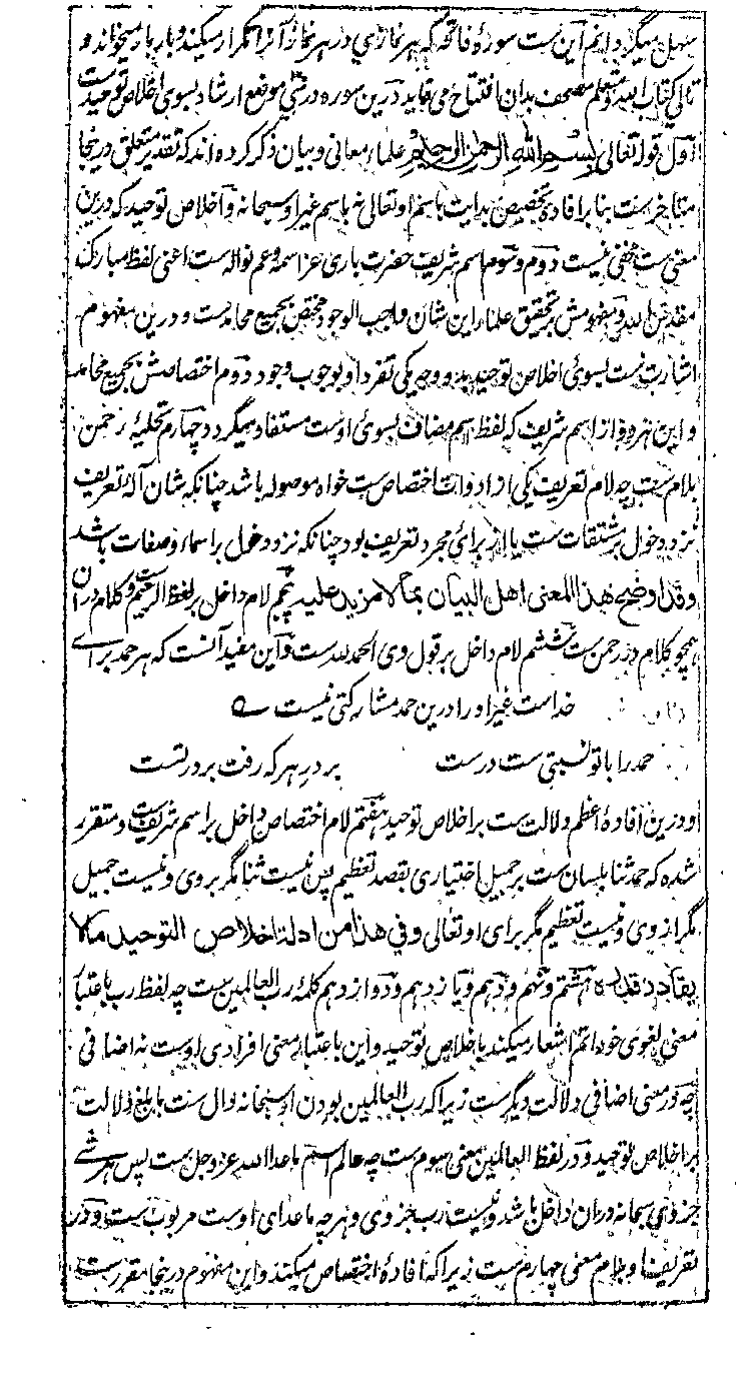 سهل میگردانم آن این ست سورهٔ فاتحه که هر نمازی در هر نماز آنرا تکرار میکند و بار بار میخواند و
تالی کتاب الله و متعلم مصحف بدان افتتاح می نماید درین سوره در سی موضع ارشاد بسوی اخلاص توحید ست
اول قوله تعالی بسم الله الرحمن الرحیم علماء معانی و بیان ذکر کرده اند که تقدیر متعلق درینجا
متاخر ست بنا بر افادهٔ تخصیص بدایت باسم او تعالی نه باسم غیر او سبحانه و اخلاص توحید که درین
معنی ست مخفی نیست دوم و سوم اسم شریف حضرت باری عز اسمه و عم نواله ست اعنی لفظ مبارک
مقدس الله و مفهومش بر تحقیق علماء این شان واجب الوجود مختص بجمیع محامد ست و درین مفهوم
اشارت ست بسوی اخلاص توحید بدو وجه یکی تفرد او بوجوب وجود دوم اختصاصش بجمیع محامد
و این هر دو از اسم شریف که لفظ اسم مضاف بسوی اوست مستفاد میگردد چهارم تحلیهٔ رحمن
بلام ست چه لام تعریف یکی از ادوات اختصاص ست خواه موصوله باشد چنانکه شان آلهٔ تعریف
نزد دخول بر مشتقات ست یا از برای مجرد تعریف بود چنانکه نزد دخول بر اسماء و صفات باشد
وقد اوضح هذا المعنی اهل البیان بما لا مزید علیه پنجم لام داخل بر لفظ الرحیم ست و کلام دران
همچو کلام در رحمن ست ششم لام داخل بر قول وی الحمد لله ست و این مفید آنست که هر حمد برای
خداست غیر او را درین حمد مشارکتی نیست ــه
حمد را با تو نسبتی ست درست بر در هر که رفت بر در تست
و درین افادهٔ اعظم دلالت ست بر اخلاص توحید هفتم لام اختصاص داخل بر اسم شریف ست و متقرر
شده که حمد ثنا بلسان ست بر جمیل اختیاری بقصد تعظیم پس نیست ثنا مگر بر وی و نیست جمیل
مگر از وی و نیست تعظیم مگر برای او تعالی و فی هذا من ادلة اخلاص التوحید ما لا
یقادر قدره هشتم و نهم و دهم و یازدهم و دوازدهم کلمهٔ رب العالمین ست چه لفظ رب باعتبار
معنی لغوی خود اتم اشعار میکند باخلاص توحید و این باعتبار معنی افرادی اوست نه اضافی
چه در معنی اضافی دلالت دیگر ست زیرا که رب العالمین بودن او سبحانه دال ست بابلغ دلالت
بر اخلاص توحید و در لفظ العالمین معنی سوم ست چه عالم اسم ماعدا الله عز و جل ست پس هر شی
جز ذات سبحانه دران داخل باشد و نیست رب جز وی و هر چه ماعدای اوست مربوب ست و در
تعریف او بلام معنی چهارم ست زیرا که افادهٔ اختصاص میکند و این مفهوم درینجا مقرر ست